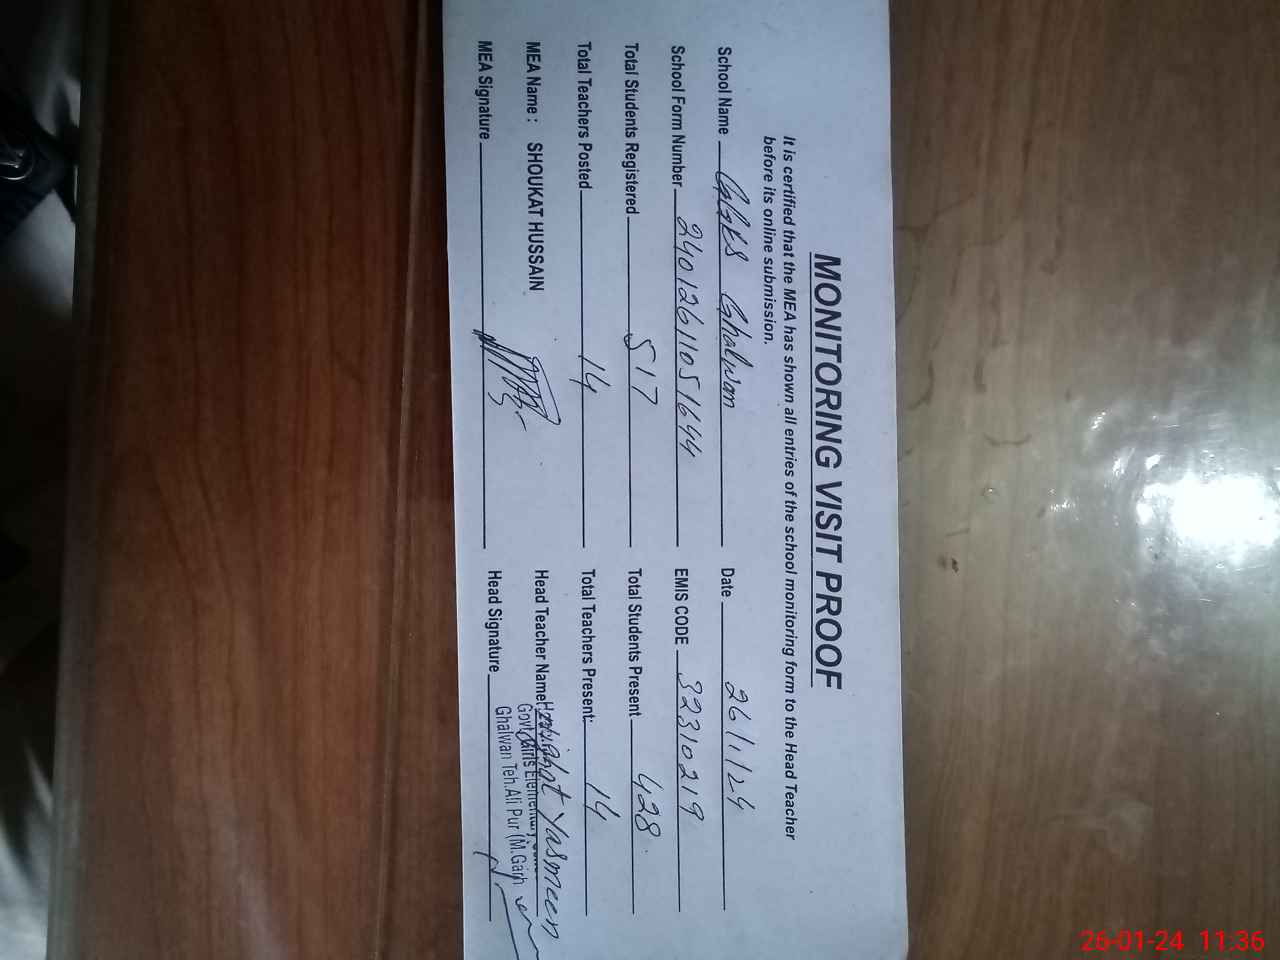 MONITORING VISIT PROOF
It is certified that the MEA has shown all entries of the school monitoring form to the Head Teacher
before its online submission.
School Name Ghalwan Date 26/1/24
School Form Number 24012611051644 EMIS CODE 32310219
Total Students Registered 517 Total Students Present 428
Total Teachers Posted 14 Total Teachers Present: 14
MEA Name : SHOUKAT HUSSAIN Head Teacher Name: Yasmeen
MEA Signature Head Signature
Govt Girls Elementary
Ghalwan Teh.Ali Pur (M.Garh
26-01-24 11:36